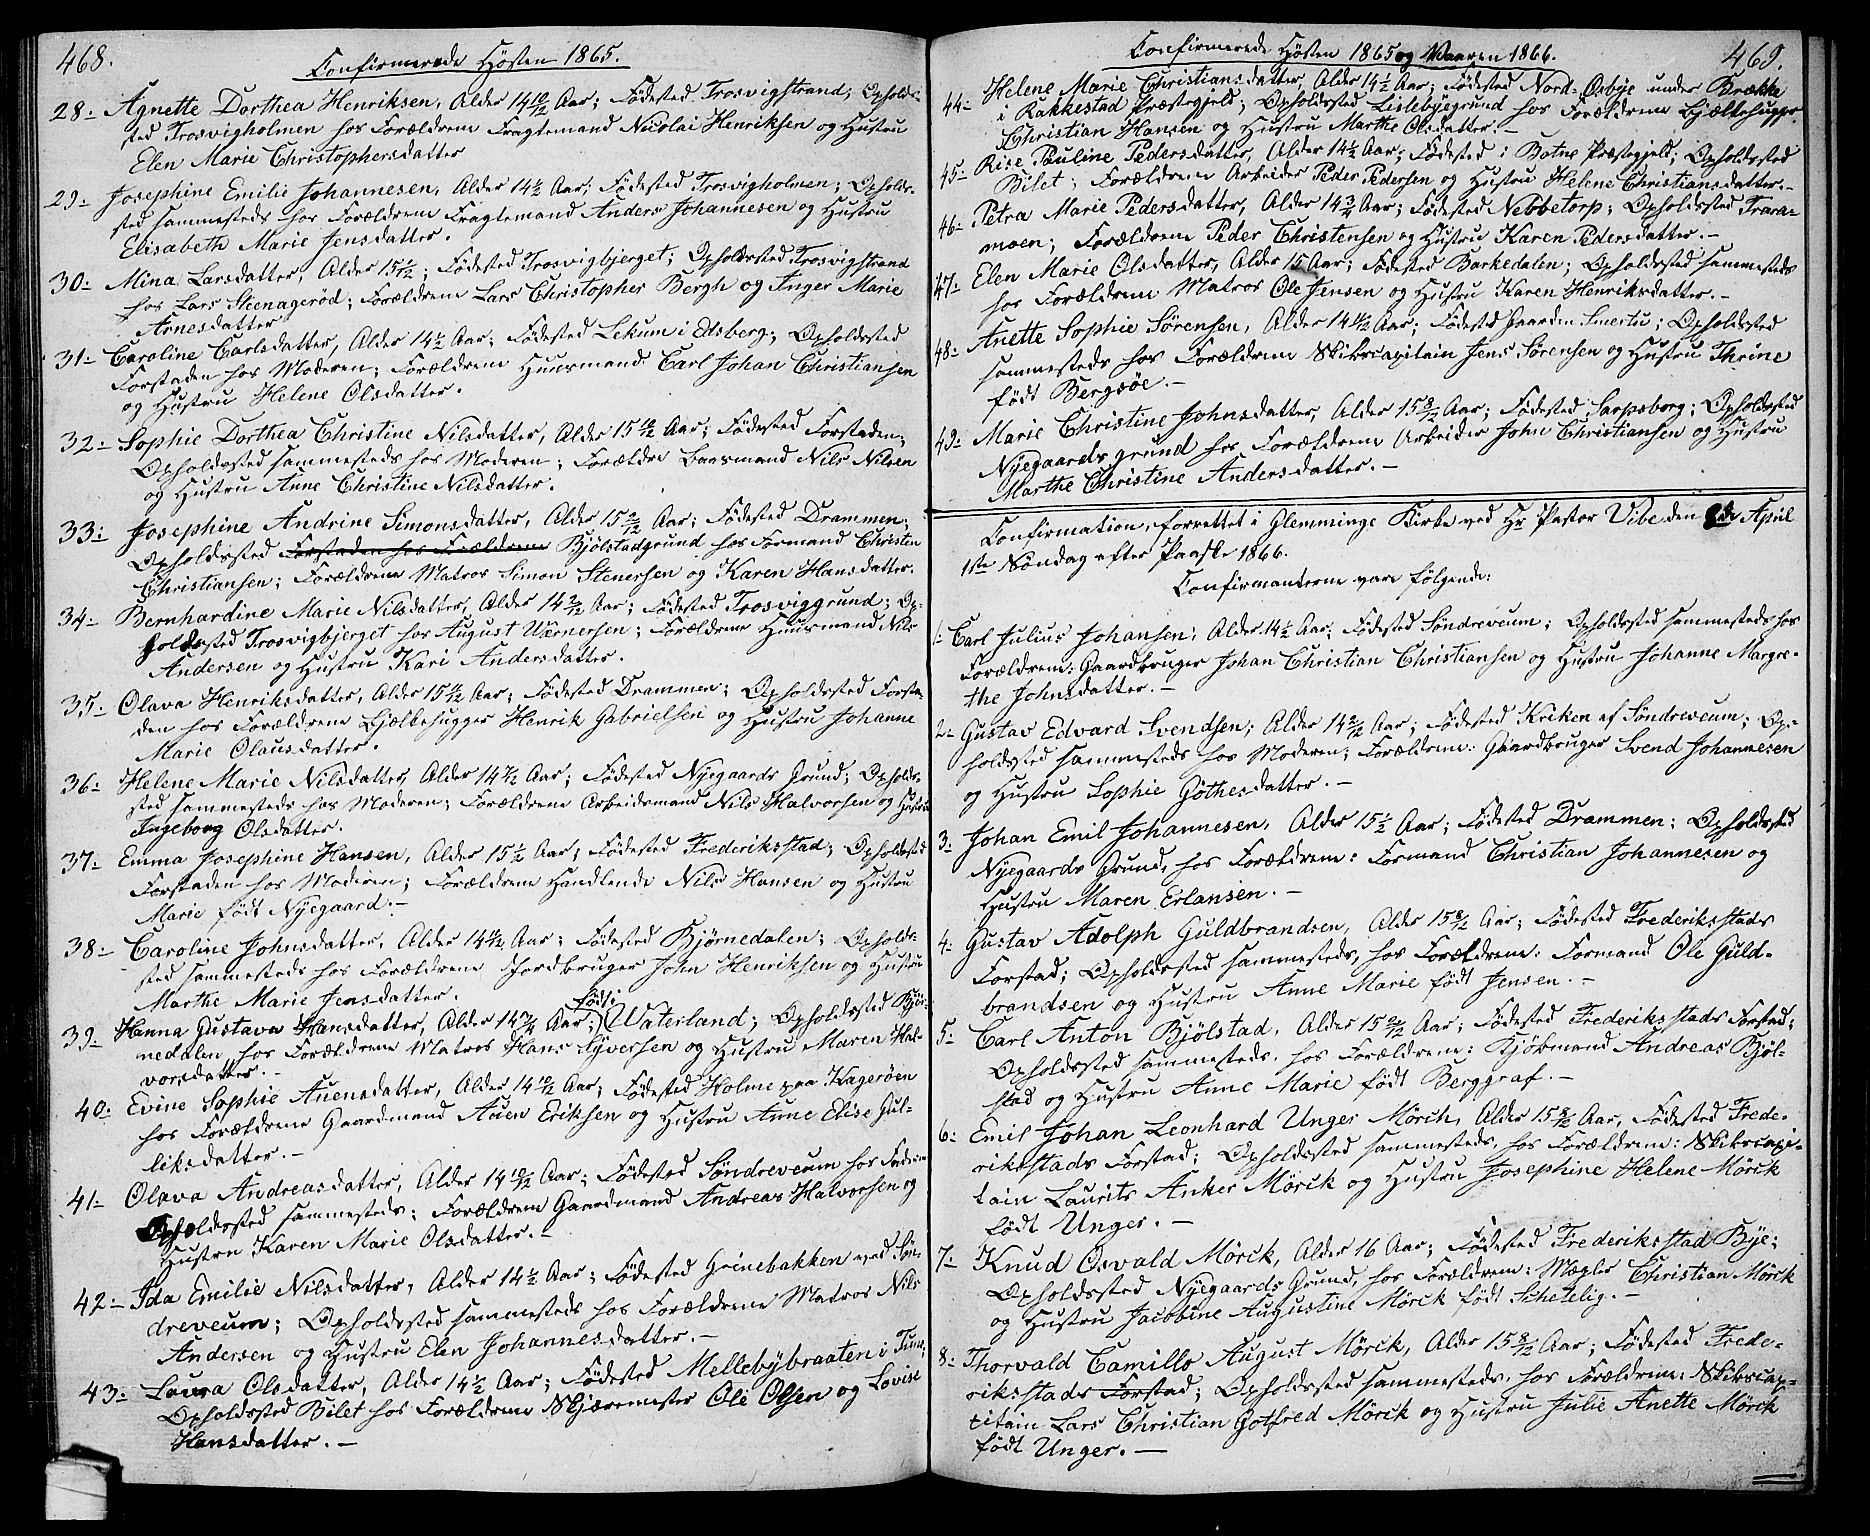 468.
Confirmerede Høsten 1865.
28. Agnette Dorthea Henriksen, Alder 14 10/12 Aar; Fødested Trosvigstrand; Opholds-
sted Trosvigholmen hos Forældrene Fragtemand Nicolai Henriksen og Hustru
Elen Marie Christophersdatter
29. Josephine Emilie Johannesen, Alder 14 1/2 Aar; Fødested Trosvigholmen; Opholds-
sted sammesteds hos Forældrene Fragtemand Anders Johannesen og Hustru
Elisabeth Marie Jensdatter.
30. Mina Larsdatter, Alder 15 1/12; Fødested Trosvigbjerget; Opholdssted Trosvigstrand
hos Lars Steenagerød; Forældrene Lars Christopher Bergh og Inger Marie
Arnesdatter
31. Caroline Carlsdatter, Alder 14 1/2 Aar; Fødested Lekum i Edsberg; Opholdssted
Forstaden hos Moderen; Forældrene Huusmand Carl Johan Christiansen
og Hustru Helene Olsdatter.
32. Sophie Dorthea Christine Nilsdatter, Alder 15 10/12 Aar; Fødested Forstaden;
Opholdssted sammesteds hos Moderen; Forældre Baasmand Nils Nilsen
og Hustru Anne Christine Nilsdatter.
33. Josephine Andrine Simonsdatter, Alder 15 2/12 Aar; Fødested Drammen;
Opholdssted Forstaden hos Forældrene Bjölstadgrund hos Formand Christen
Christiansen; Forældrene Matros Simon Stenersen og Karen Hansdatter.
34. Bernhardine Marie Nilsdatter, Alder 14 2/12 Aar; Fødested Trosviggrund; Op-
holdssted Trosvigbjerget hos August Wernersen; Forældrene Huusmand Nils
Andersen og Hustru Kari Andersdatter.
35. Olava Henriksdatter, Alder 15 11/12 Aar; Fødested Drammen; Opholdssted Forsta-
den hos Forældrene Bjælkehugger Henrik Gabrielsen og Hustru Johanne
Marie Olausdatter.
36. Helene Marie Nilsdatter Alder 14 7/12 Aar; Fødested Nyegaards Grund; Opholds-
sted sammesteds hos Moderen; Forældrene Arbeidsmand Nils Halvorsen og Hustru
Ingeborg Olsdatter.
37. Emma Josephine Hansen, Alder 15 1/2 Aar; Fødested Frederiksstad; Opholdssted
Forstaden hos Moderen; Forældrene Handlende Nils Hansen og Hustru
Marie født Nyegaard.-
38. Caroline Johnsdatter, Alder 14 11/12 Aar; Fødested Bjørnedalen; Opholds-
sted sammesteds hos Forældrene Jordbruger John Henriksen og Hustru
Marthe Marie Jensdatter.
39. Hanna Gustava Hansdatter, Alder 14 3/4 Aar; Føds: Waterland; Opholdssted Bjør-
nedalen hos Forældrene Matros Hans Syversen og Hustru Maren Hal-
vorsdatter.-
40. Evine Sophie Auensdatter, Alder 14 10/12 Aar; Fødested Holme paa Kagerøen
hos Forældrene Gaardmand Auen Eriksen og Hustru Anne Elise Gul-
liksdatter.-
41. Olava Andreasdatter, Alder 14 10/12 Aar; Fødested Søndreveum hos Faderen
Opholdssted sammesteds; Forældrene Gaardmand Andreas Halvorsen og
Hustru Karen Marie Olsdatter.-
42. Ida Emilie Nilsdatter, Alder 14 1/2 Aar; Fødested Grinebakken ved Søn-
dreveum; Opholdssted sammesteds hos Forældrene Matros Nils
Andersen og Hustru Elen Johannesdatter.-
43. Laura Olsdatter, Alder 14 1/2 Aar; Fødested Mellebybraaten i Tune,
Opholdssted Bilet hos Forældrene Skjæremester Ole Olsen og Lovise
Hansdatter.-
Confirmerede Høsten 1865 og Vaaren 1866.
469.
44. Helene Marie Christiansdatter, Alder 14 1/2 Aar; Fødested Nord-Osbye under Brække
i Rakkestad Præstegjeld; Opholdssted Lislebyegrund hos Forældrene Bjælkehugger
Christian Hansen og Hustru Marthe Olsdatter.-
45. Rise Pauline Pedersdatter, Alder 14 1/2 Aar; Fødested i Botne Præstegjeld; Opholdssted
Bilet; Forældrene Arbeider Peder Pedersen og Hustru Helene Christiansdatter.-
46. Petra Marie Pedersdatter, Alder 14 3/4 Aar; Fødested Nebbetorp; Opholdssted Trara-
moen; Forældrene Peder Christensen og Hustru Karen Pedersdatter.-
47. Elen Marie Olsdatter, Alder 15 Aar; Fødested Barkedalen; Opholdssted sammesteds
hos Forældrene Matros Ole Jensen og Hustru Karen Henriksdatter.-
48. Anette Sophie Sørensen, Alder 14 11/12 Aar; Fødested Gaarden Smertu; Opholdssted
sammesteds hos Forældrene Skibscapitain Jens Sørensen og Hustru Thrine
født Bergsöe.-
49. Marie Christine Johnsdatter, Alder 15 8/12 Aar; Fødested Sarpsborg; Opholdssted
Nyegaardsgrund hos Forældrene Arbeider John Christiansen og Hustru
Marthe Christine Andersdatter.-
Confirmation, forrettet i Glemminge Kirke ved Hr Pastor Vibe den 8de April
1ste Søndag efter Paaske 1866.
Confirmanterne vare følgende:
1. Carl Julius Johansen; Alder 14 1/2 Aar; Fødested Søndreveum; Opholdssted sammesteds hos
Forældrene: Gaardbruger Johan Christian Christiansen og Hustru Johanne Margre-
the Johnsdatter.-
2. Gustav Edvard Svendsen; Alder 14 2/12 Aar; Fødested Kirken af Søndreveum; Op-
holdssted sammesteds hos Moderen; Forældrene: Gaardbruger Svend Johannesen
og Hustru Sophie Göthesdatter.-
3. Johan Emil Johannesen, Alder 15 1/2 Aar; Fødested Drammen; Opholdssted
Nyegaards Grund, hos Forældrene: Formand Christian Johannesen og
Hustru Maren Erlansen.-
4. Gustav Adolph Guldbrandsen, Alder 15 8/12 Aar; Fødested Frederiksstads
Forstad; Opholdssted sammesteds, hos Forældrene: Formand Ole Guld-
brandsen og Hustru Anne Marie født Jensen.-
5. Carl Anton Bjölstad, Alder 15 2/12 Aar; Fødested Frederiksstads Forstad;
Opholdssted sammesteds, hos Forældrene: Kjøbmand Andreas Bjöl-
stad og Hustru Anne Marie født Berggraf.-
6. Emil Johan Leonhard Unger Mörch, Alder 15 8/12 Aar, Fødested Frede-
riksstads Forstad; Opholdssted sammesteds, hos Forældrene: Skibscapi-
tain Laurits Anker Mörck og Hustru Josephine Helene Mörck
født Unger.-
7. Knud Osvald Mörck, Alder 16 Aar; Fødested Frederiksstad Bye;
Opholdssted Nyegaards Grund, hos Forældrene: Mægler Christian Mörck
og Hustru Jacobine Augustine Mörck født Schetelig.-
8. Thorvald Camillo August Mörck, Alder 15 8/12 Aar; Fødested Frede-
riksstads Forstad; Opholdssted sammesteds, hos Forældrene: Skibscap-
citain Lars Christian Gotfred Mörck og Hustru Julie Anette Mörck
født Unger.-